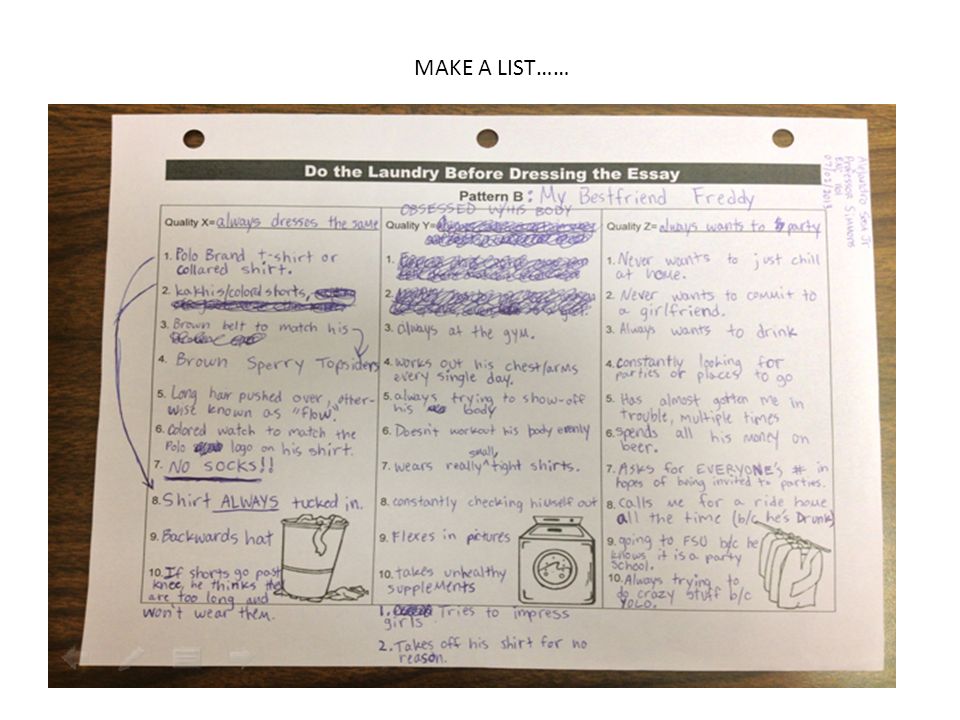 MAKE A LIST……
Do the Laundry Before Dressing the Essay
Pattern B: My Bestfriend Freddy
Alejandro Sosa Jr
Professor Simmons
07/01/2013
Quality X= always dresses the same
1. Polo Brand t-shirt or
collared shirt.
2. kakhis/colord shorts,
3. Brown belt to match his
4. Brown Sperry Topsiders
5. Long hair pushed over, other-
wise known as "flow."
6. colored watch to match the
Polo logo on his shirt.
7. NO SOCKS!!
8. Shirt ALWAYS tucked in.
9. Backwards hat
10. If shorts go past
knee, he thinks they
are too long and
won't wear them.
OBSESSED W/HIS BODY
Quality Y=
1.
2.
3. always at the gym.
4. works out his chest/arms
every single day.
5. always trying to show-off
his body
6. Doesn't workout his body evenly
small,
7. wears really ^ tight shirts.
8. constantly checking himself out
9. Flexes in pictures
10. takes unhealthy
supplements
1. Tries to impress
girls.
2. Takes off his shirt for no
reason.
Quality Z= always wants to party
1. Never wants to just chill
at home.
2. Never wants to commit to
a girlfriend.
3. Always wants to drink
4. constantly looking for
parties or places to go
5. Has almost gotten me in
trouble, multiple times
6. spends all his money on
beer.
7. Asks for EVERYONE's # in
hopes of being invited to parties.
8. calls me for a ride home
all the time (b/c he's Drunk)
9. going to FSU b/c he
knows it is a party
school.
10. Always trying to
do crazy stuff b/c
YOLO.